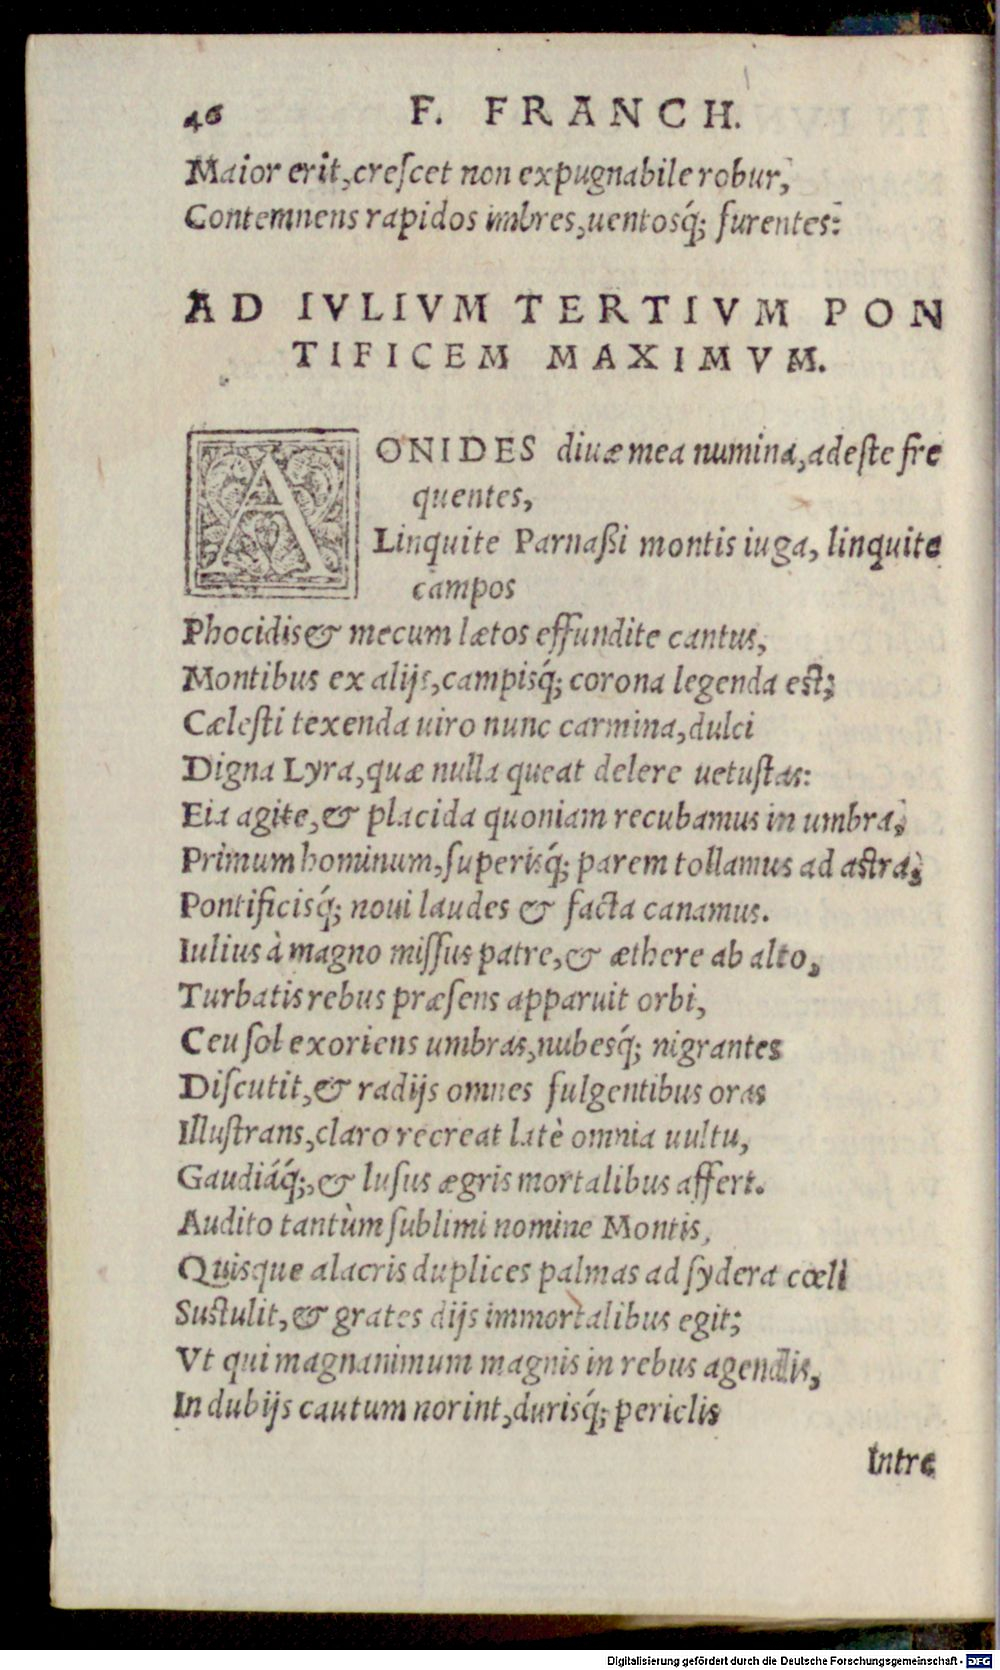 46 F. FRANCH.
Maior erit, creſcet non expugnabile robur,
Contemnens rapidos imbres, uentosq́; furentes:
AD IVLIVM TERTIVM PON
TIFICEM MAXIMVM.
AONIDES diuæ mea numina, adeſte fre
quentes,
Linquite Parnaßi montis iuga, linquite
campos
Phocidis & mecum lætos effundite cantus,
Montibus ex alijs, campisq́; corona legenda eſt;
Cæleſti texenda uiro nunc carmina, dulci
Digna Lyra, quæ nulla queat delere uetuſtas:
Eia agite, & placida quoniam recubamus in umbra,
Primum hominum, ſuperisq́; parem tollamus ad aſtra;
Pontificisq́; noui laudes & facta canamus.
Iulius à magno miſſus patre, & æthere ab alto,
Turbatis rebus præſens apparuit orbi,
Ceu ſol exoriens umbras, nubesq́; nigrantes
Diſcutit, & radijs omnes fulgentibus oras
Illuſtrans, claro recreat latè omnia uultu,
Gaudiáq́;, & luſus ægris mortalibus affert.
Audito tantùm ſublimi nomine Montis,
Quisque alacris duplices palmas ad ſydera cœli
Suſtulit, & grates dijs immortalibus egit;
Vt qui magnanimum magnis in rebus agendis,
In dubijs cautum norint, durisq́; periclis
Intre
Digitalisierung gefördert durch die Deutsche Forschungsgemeinschaft - DFG